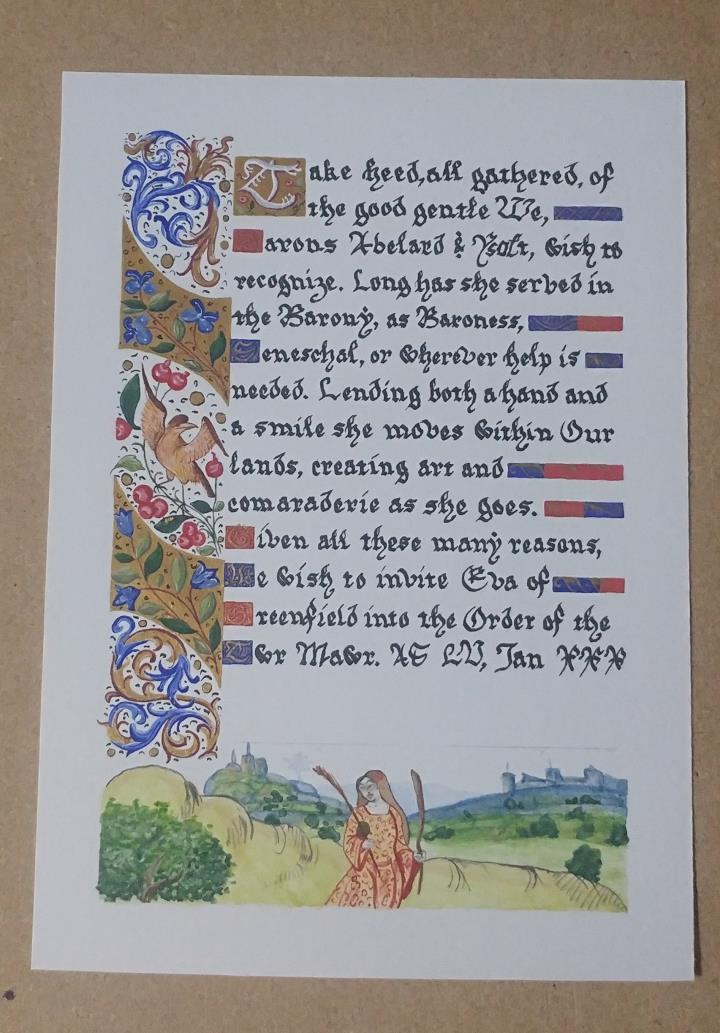 Take heed, all gathered, of
the good gentle We,
Barons Abelard & Ysolt, wish to
recognize. Long has she served in
the Barony, as Baroness,
Seneschal, or wherever help is
needed. Lending both a hand and
a smile she moves within Our
lands, creating art and
comaraderie as she goes.
Given all these many reasons,
We wish to invite Eva of
Greenfield into the Order of the
Awr Mawr. AS LV, Jan XXX